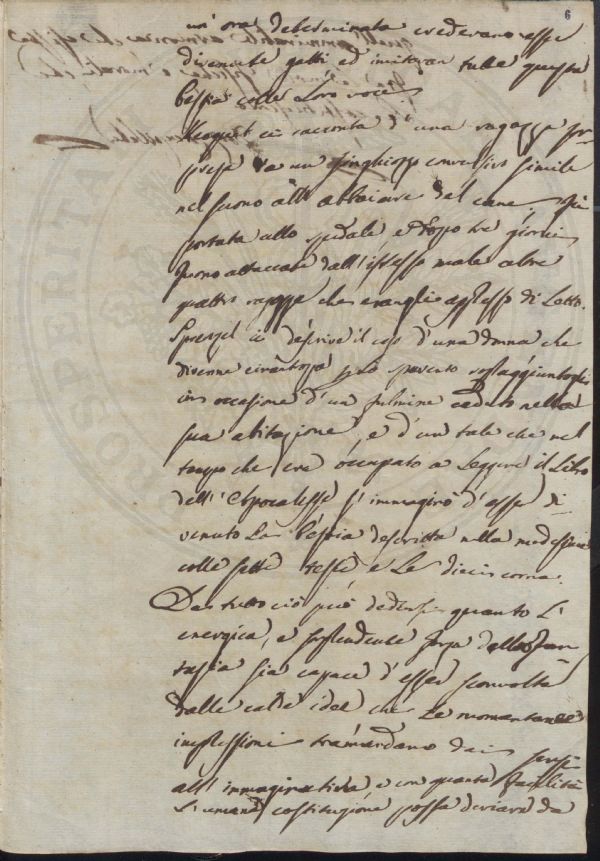 6
un' ora determinata credevano esser
divenute gatti ed imitavan tutte questa
bestia colle Loro voci.
ci racconta d' una ragazza sor-
presa da un singhiozzo convulsivo simile
nel suono all' abbaiare del cane, fu
portata allo spedale e dopo tre giorni
furono attaccate dall' istesso male altre
quattro ragazze che eran gli appresso di Letto.
Sprenzel ci descrive il caso d' una donna che
divenne per lo spavento sopraggiuntogli
in occasione d' un fulmine caduto nella
sua abitazione, e d' un tale che nel
tempo che era occupato a Leggere il Libro
dell' Apocalisse s' immaginò d' esser di
venuto La bestia descritta nella medesima
colle sette teste e Le dieci corna.
Da tutto ciò può dedursi quanto L'
energica, e forza della Fan
tasia sia capace d' esser sconvolta
dalle calde idee che Le momentanee
impressioni tramandano dai sensi
all' immaginativa e con quanta facilità
L' umana costituzione possa deviare da
PROSPERITA